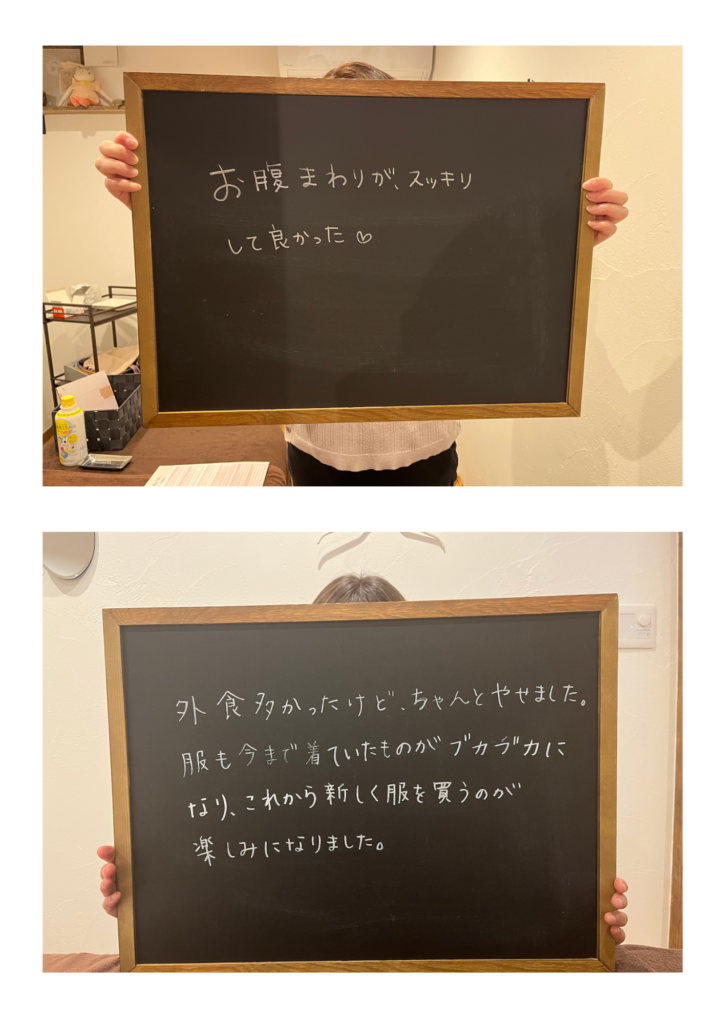 お腹まわりが、スッキリ
して良かった♡
外食多かったけど、ちゃんとやせました。
服も今まで着ていたものがブカブカに
なり、これから新しく服を買うのが
楽しみになりました。